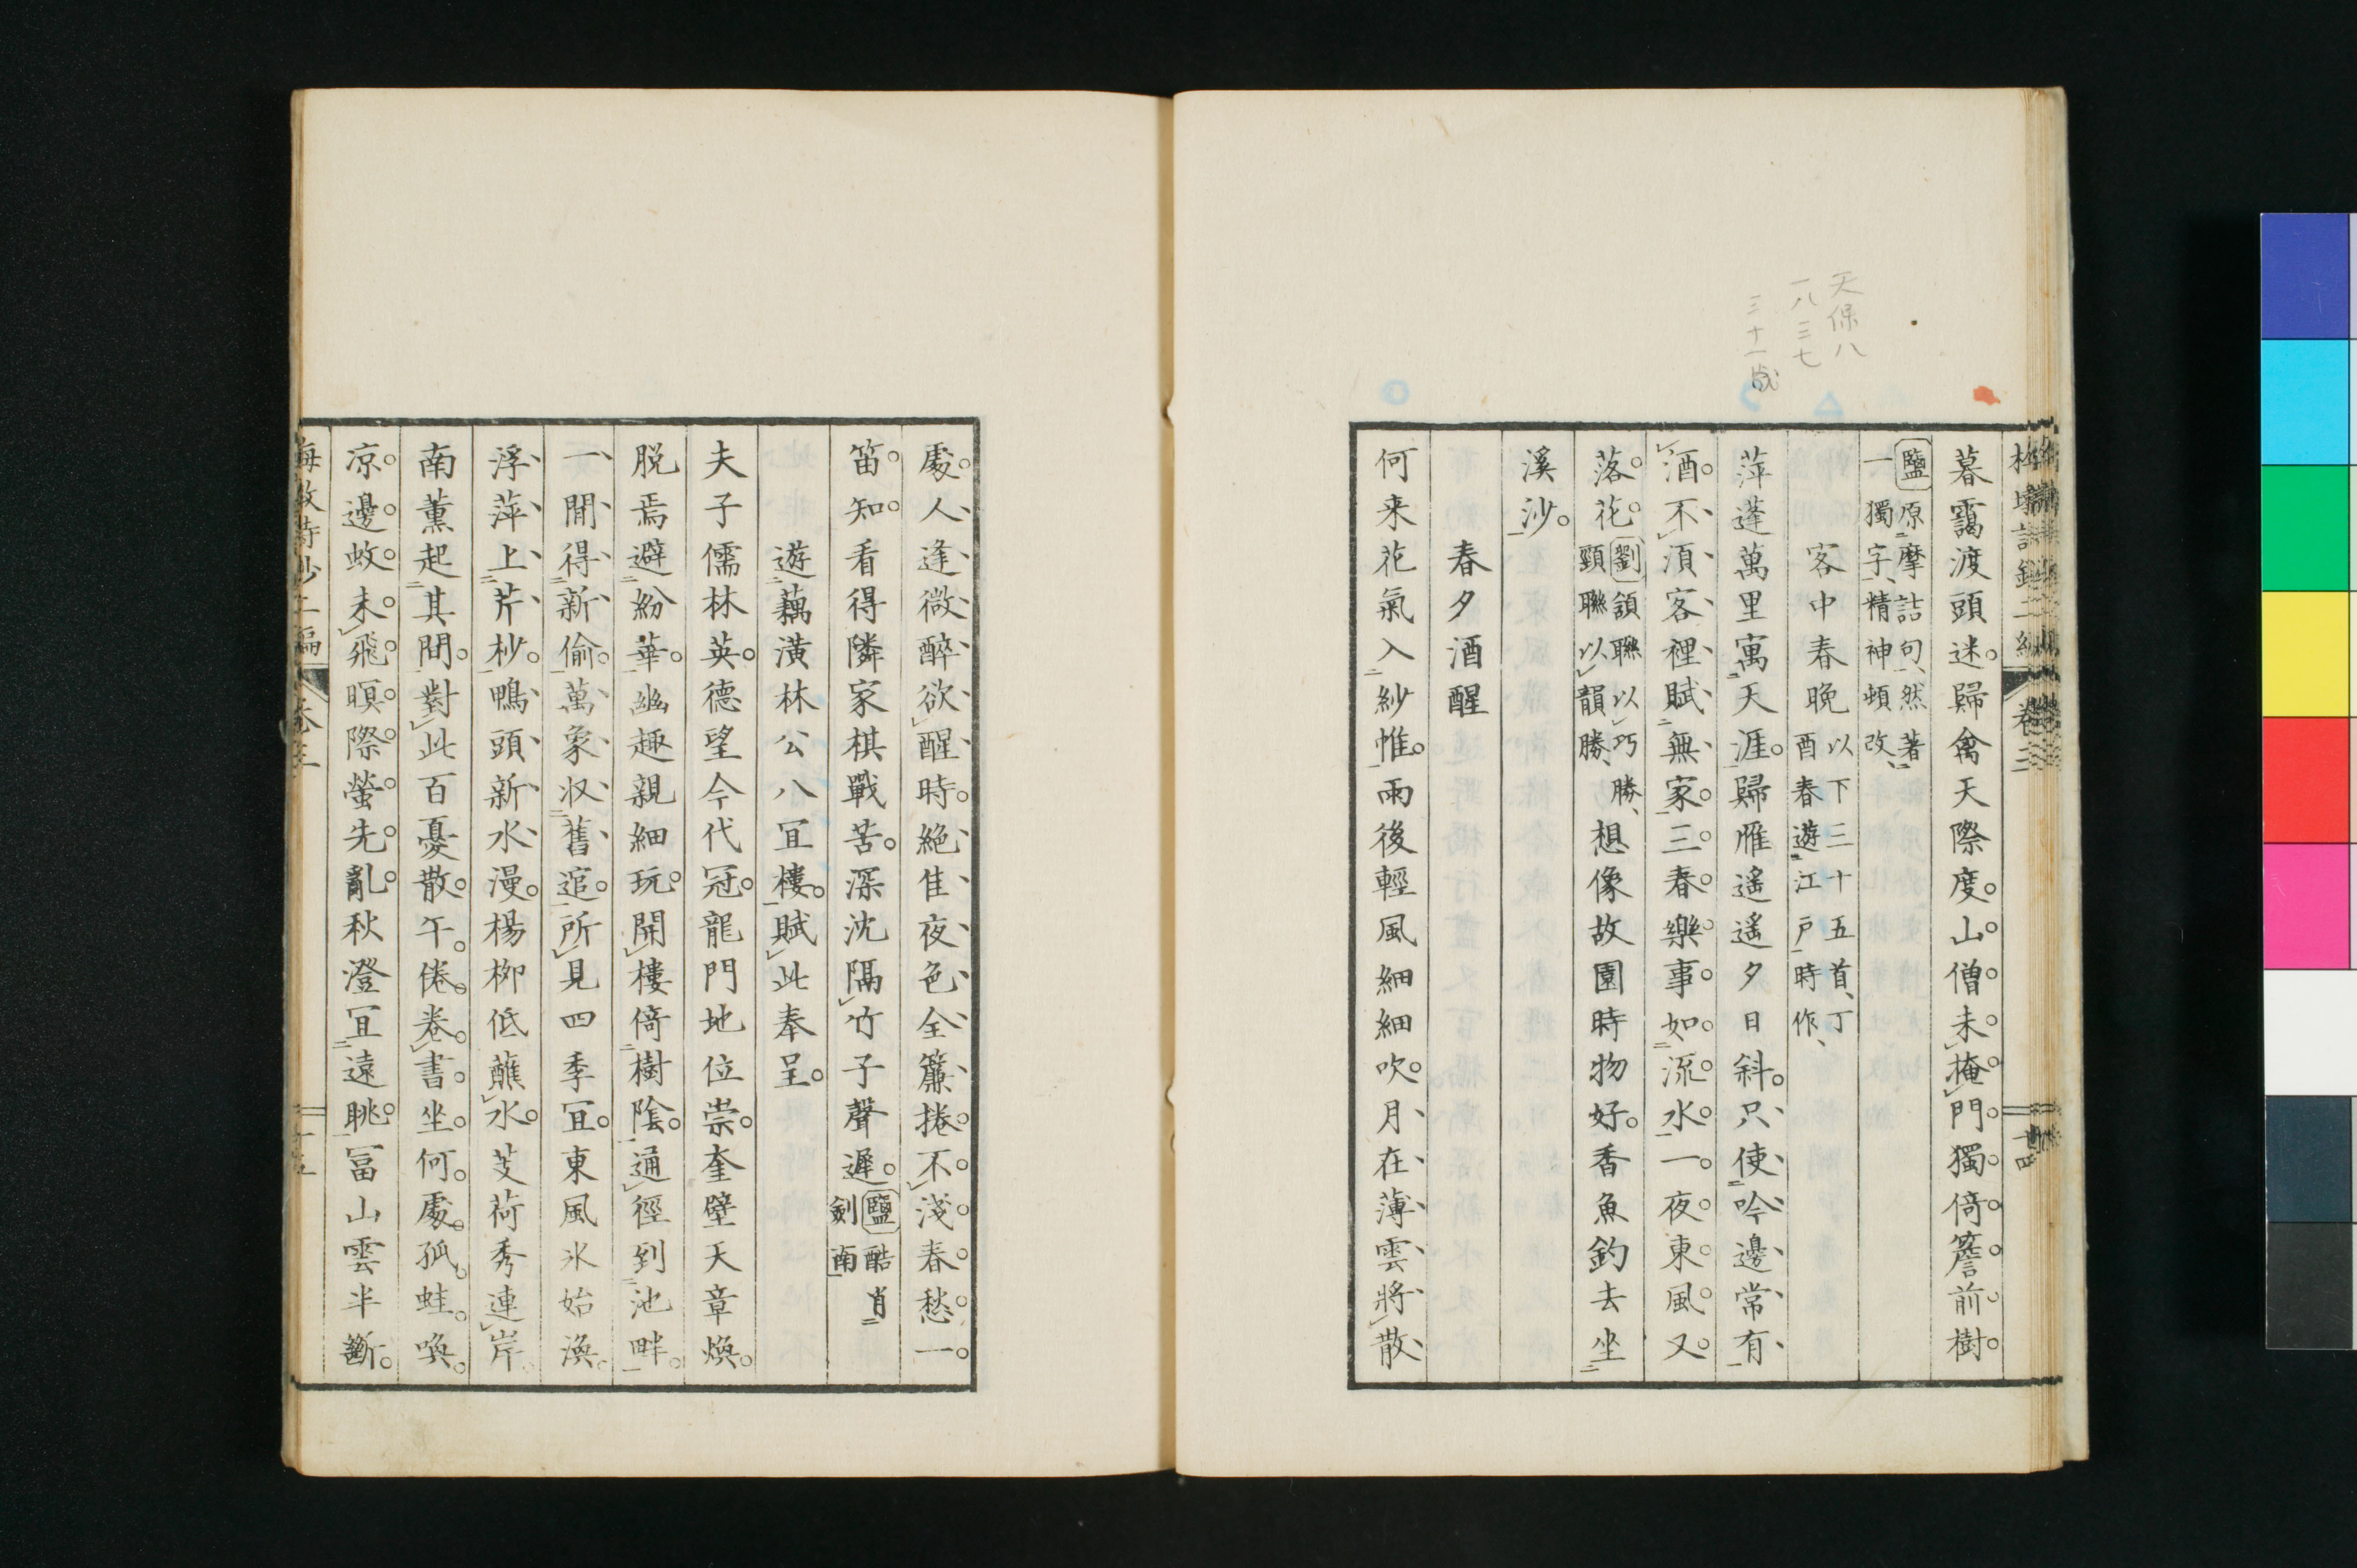 天保八
一八三七
三十一歳
暮靄渡頭迷歸禽天際度山僧未掩門獨倚簷前樹
鹽原摩詰句然著
一獨字精神頓改
客中春晚以下三十五首丁
酉春遊江戸時作
萍蓬萬里寓天涯歸雁遙遙夕日斜只使吟邊常有
酒不須客裡賦無家三春樂事如流水一夜東風又
落花劉頷聯以巧勝
頸聯以韻勝
想像故園時物好香魚釣去坐
溪沙
春夕酒醒
何来花氣入紗帷雨後輕風細細吹月在薄雲將散
處人逢微醉欲醒時絕佳夜色全簾捲不淺春愁一
笛知看得隣家棋戰苦深沈隔竹子聲遲鹽酷肖
劍南
遊藕潢林公八宜樓賦此奉呈
夫子儒林英德望今代冠龍門地位崇奎壁天章煥
脱焉避紛華幽趣親細玩開樓倚樹陰通徑到池畔
一閒得新偷萬象収舊逭所見四季宜東風氷始渙
浮萍上芹杪鴨頭新水漫楊柳低蘸水芰荷秀連岸
南薫起其間對此百憂散午倦卷書坐何處孤蛙喚
凉邊蚊未飛暝際螢先亂秋澄宜遠眺冨山雲半斷